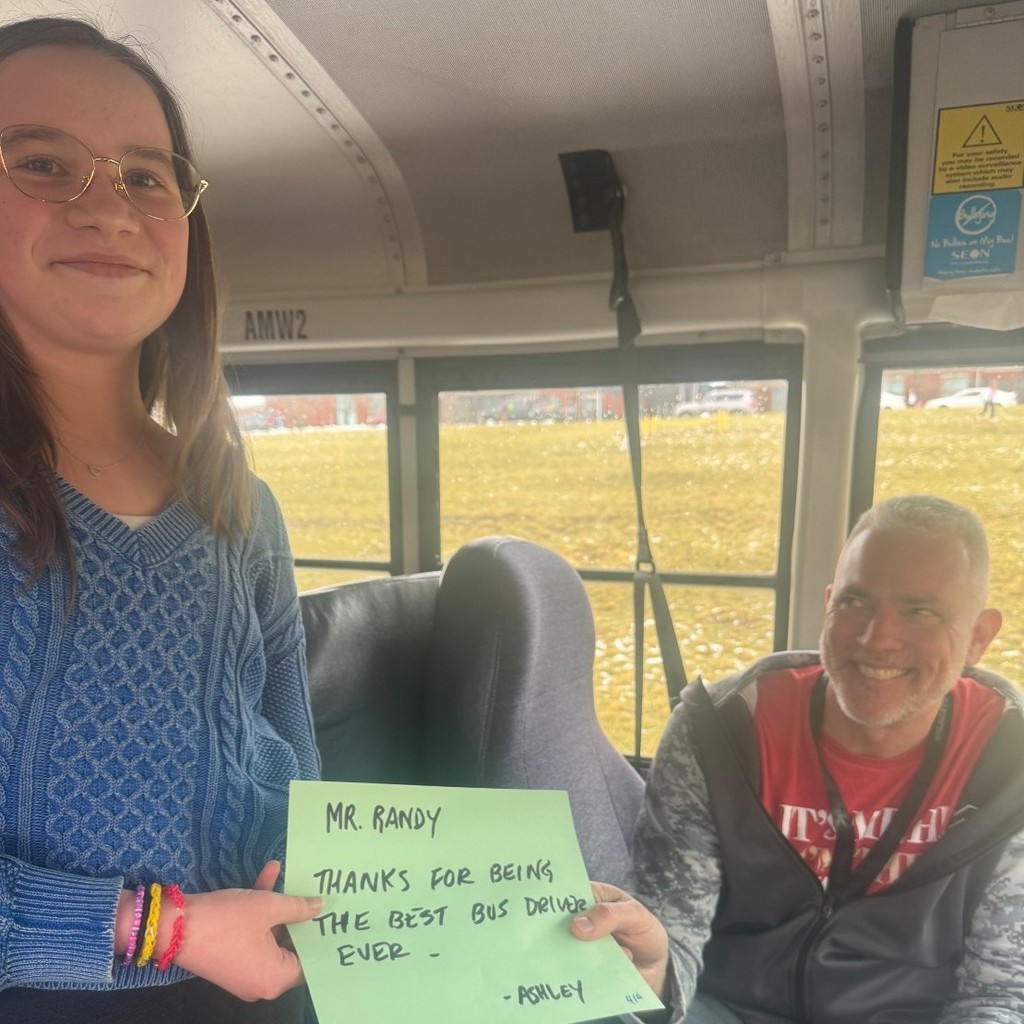 SEON
For your safety,
you may be recorded
by a video surveillance
system which may
also include audio
recording.
Bullying
No Bullies on My Bus!
SEON
AMW2
MR. RANDY
THANKS FOR BEING
THE BEST BUS DRIVER
EVER -
- ASHLEY
IT'S